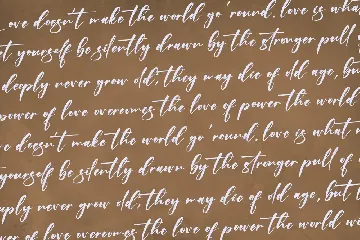 ove doesn't make the world go 'round, love is what
t yourself be silently drawn by the stronger pull
deeply never grow old; they may die of old age, bu
power of love overcomes the love of power the world
e doesn't make the world go 'round, love is what
yourself be silently drawn by the stronger pull of
eply never grow old; they may die of old age, but
er of love overcomes the love of power the world w